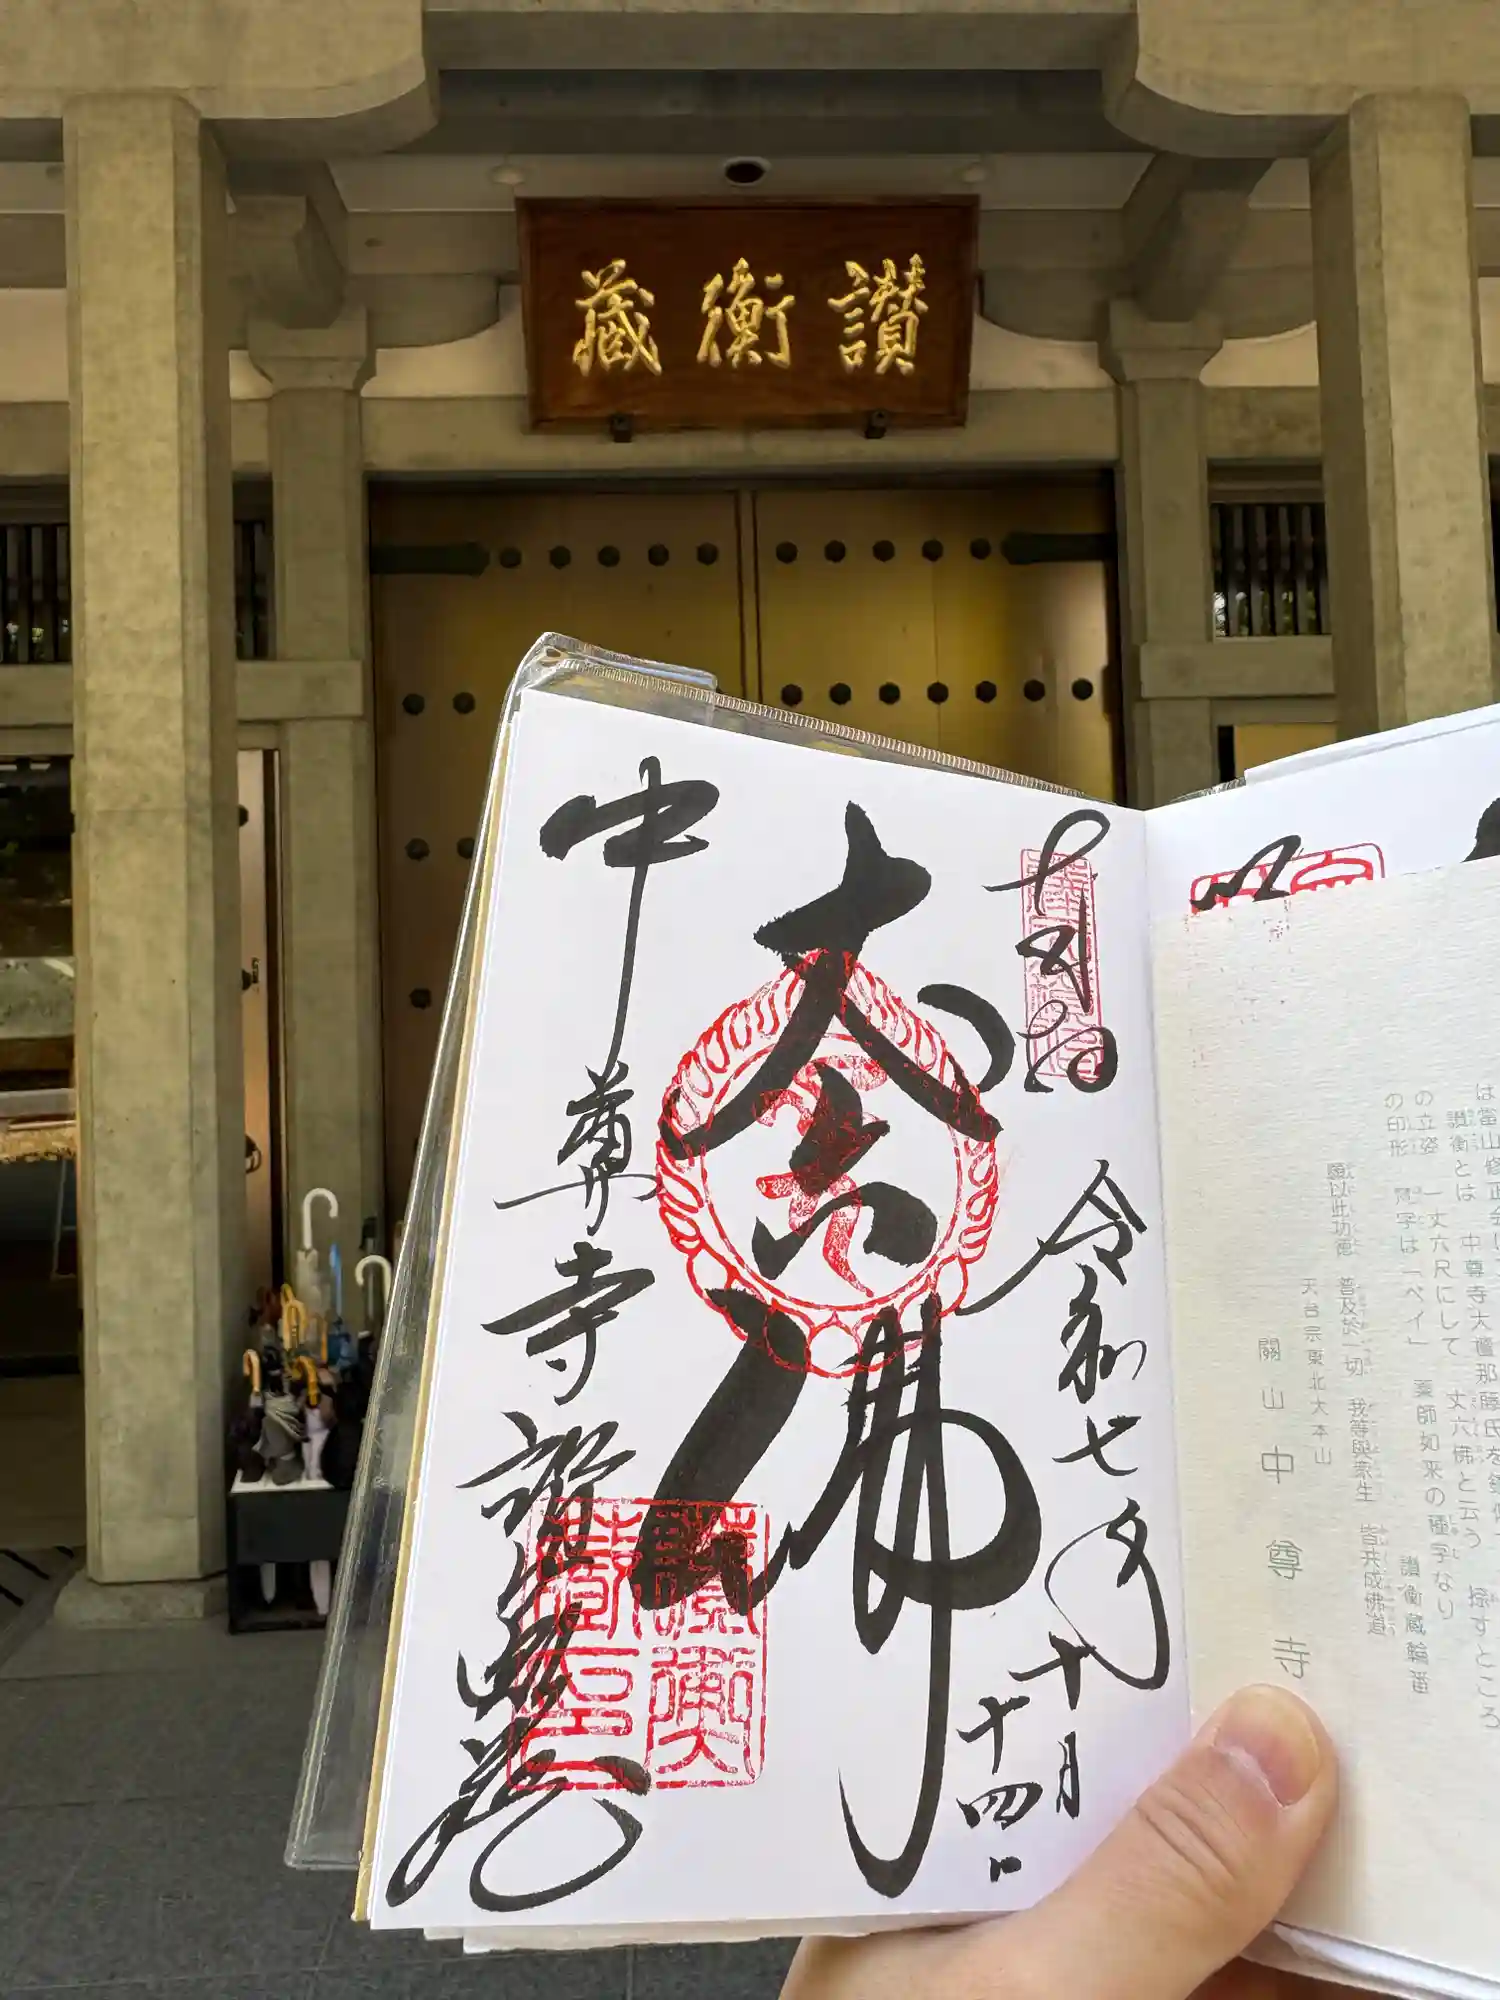 讃衡藏
奉拝
令和七年十月十四日
丈六佛
中尊寺讃衡蔵
讃衡蔵印
は當山修正会に
讃衡とは 中尊寺大檀那藤氏を
の立姿 一丈六尺にして 丈六佛と云う 捺すところ
の印形 𤚥字は「ベイ」 薬師如来の種字なり
讃衡蔵輪番
願以此功徳 普及於一切 我等與衆生 皆共成佛道
天台宗東北大本山
關山 中尊寺